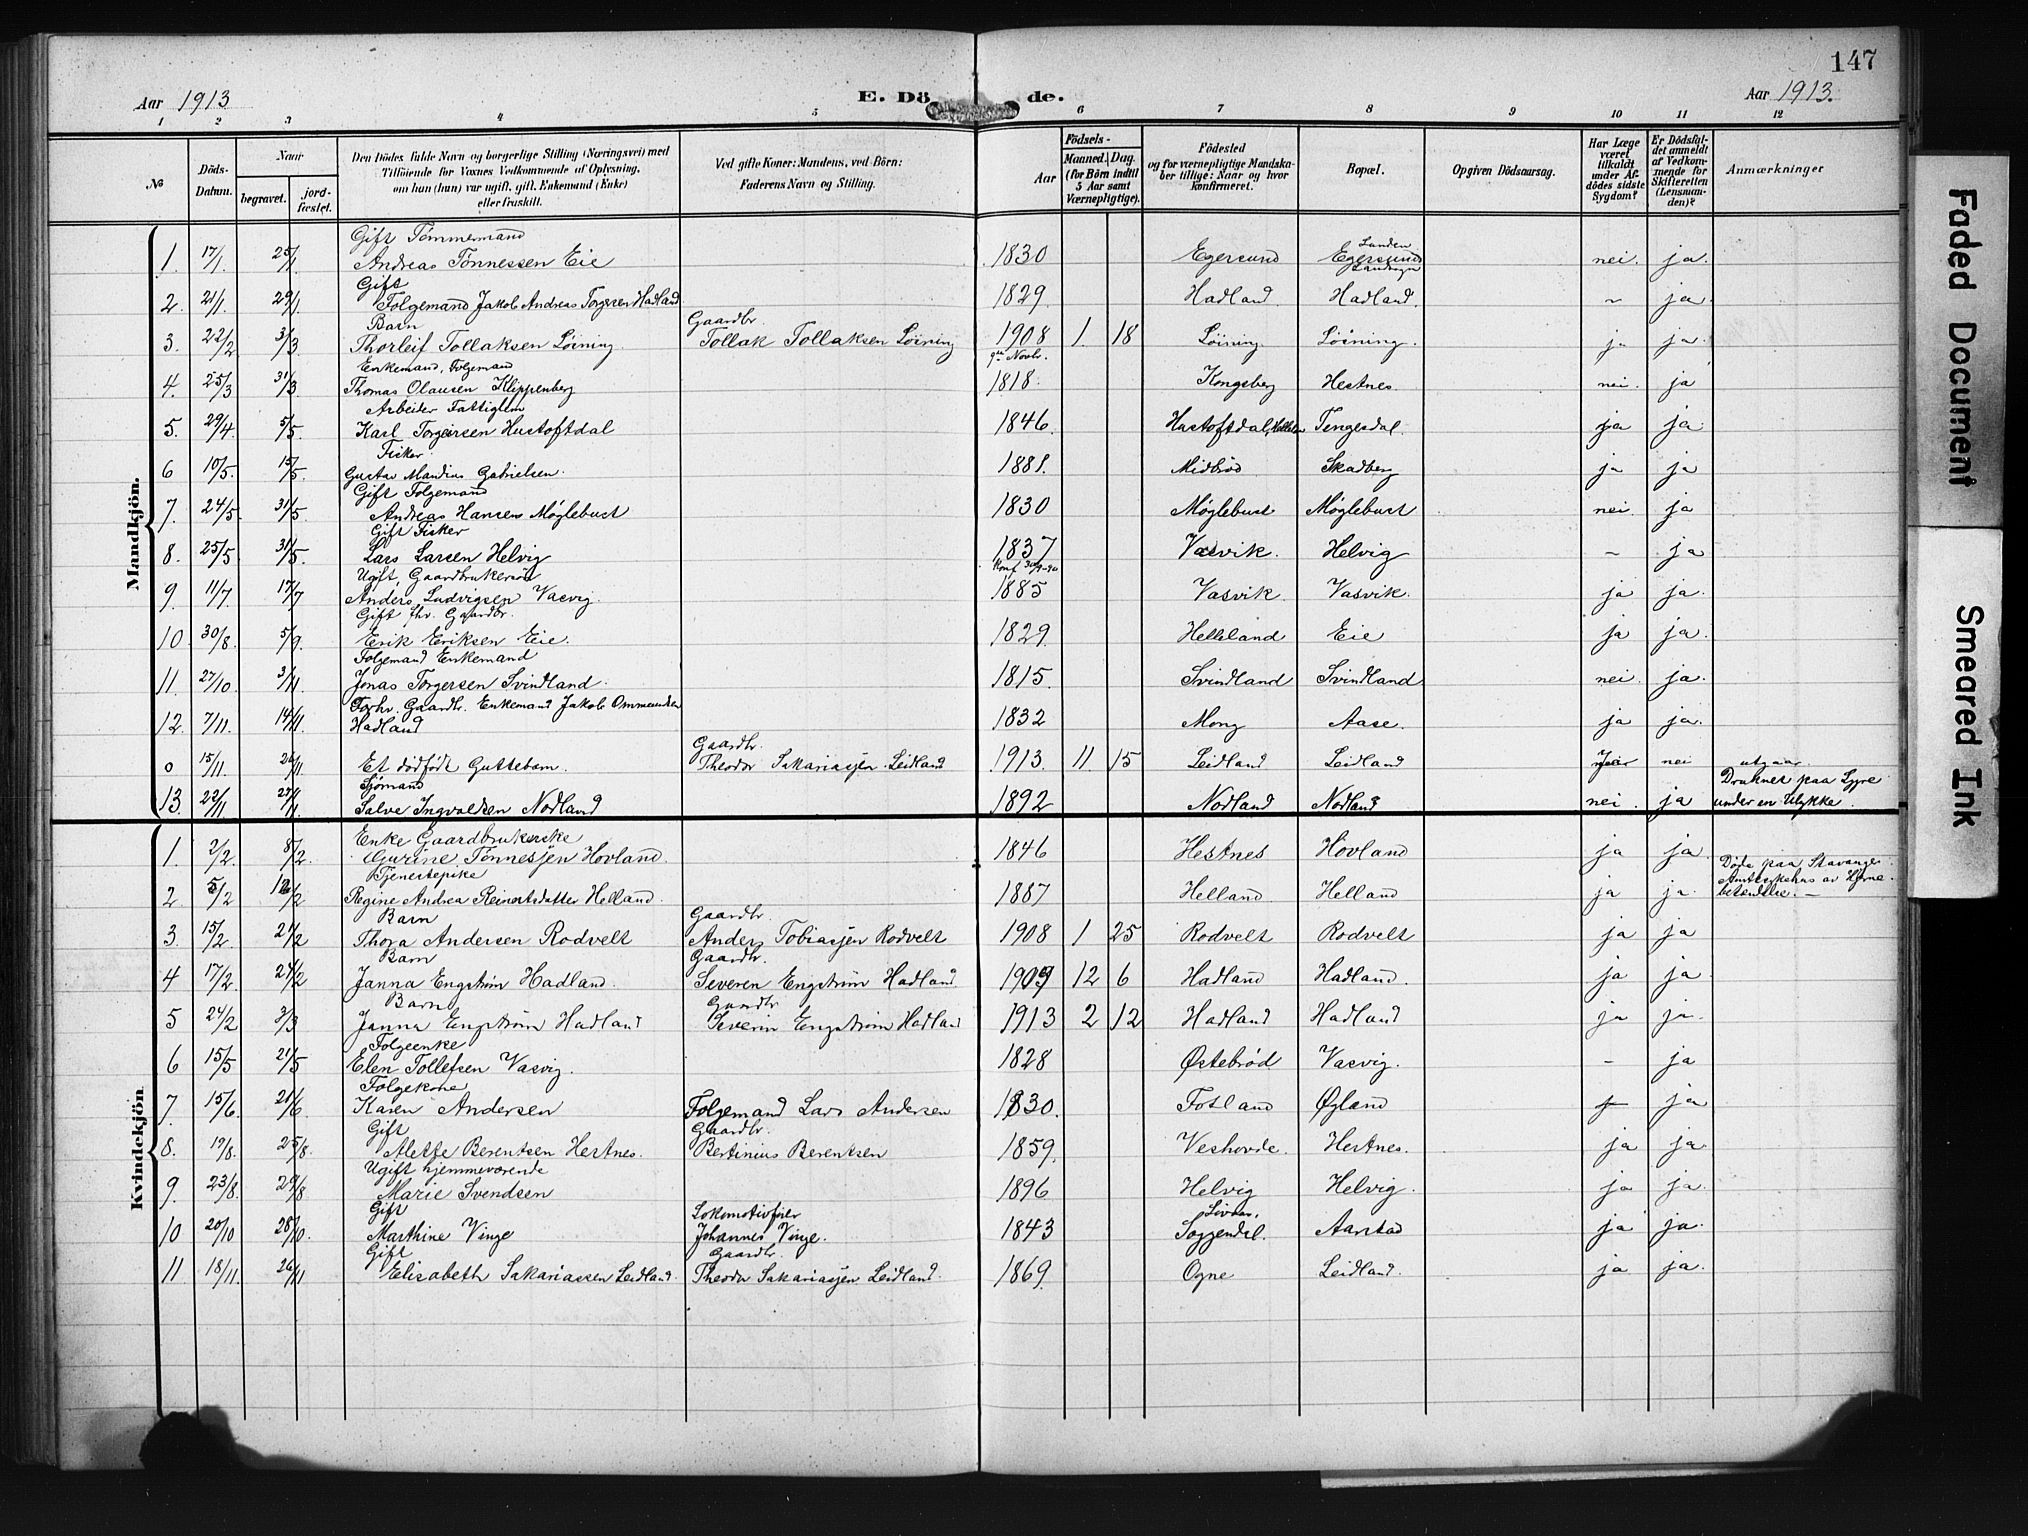 147
Aar 1913
E. Dö de.
Aar 1913.
1 2 3 4 5 6 7 8 9 10 11 12
No
Döds-Datum.
Naar
begravet.
jord-fæstet.
Den Dödes fulde Navn og borgerlige Stilling (Næringsvei) med
Tilföiende for Voxnes Vedkommende af Oplysning,
om han (hun) var ugift, gift, Enkemand (Enke)
eller fraskilt.
Ved gifte Koner: Mandens, ved Börn:
Faderens Navn og Stilling.
Födsels-
Aar
Maaned. Dag.
(for Börn indtil
5 Aar samt
Værnepligtige).
Födested
og for værnepligtige Mandska-
ber tillige: Naar og hvor
konfirmeret.
Bopæl.
Opgiven Dödsaarsag.
Har Læge
været
tilkaldt
under Af-
dödes sidste
Sygdom?
Er Dödsfal-
det anmeldt
af Vedkom-
mende for
Skifteretten
(Lensman-
den)?
Anmærkninger
Mandkjön.
1. 17/1. 25/1 Gift Tømmermand Andreas Tønnessen Eie 1830 Egersund Egersund Landsogn nei. ja.
2. 21/1. 29/1 Gift Folgemand Jakob Andreas Torgersen Hadland 1829. Hadland. Hadland. ~ ja.
3. 22/2 3/3 Barn Thorleif Tollaksen Löining. Gaardbr. Tollak Tollaksen Löining 1908 1. 18 Löining Löining. ja ja.
4. 25/3 31/3 Enkemand, Folgemand Thomas Olausen Klippenberg 9de Novbr. 1818. Kongsberg Hestnes nei. ja
5. 29/4. 5/5. Arbeider Fattiglem Karl Torgeirsen Hustoftdal 1846. Hustoftdal, Tengesdal. ja ja.
6 10/5. 15/5. Fisker. Gustav Mandius Gabrielsen. 1881. Midbrød Skadberg ja ja
7. 24/5. 31/5 Gift Folgemand Andreas Hansen Møglebust 1830 Møglebust Møglebust nei. ja
8. 25/5. 31/5. Gift Fisker Lars Larsen Helvig 1837 Vasvik. Helvig - ja
9. 11/7. 17/7 Ugift, Gaardbrukersøn Anders Ludvigsen Vasvig. Konf 1885 Vasvik. Vasvik. ja ja.
10. 30/8. 5/9. Gift fhv. Gaardbr. Erik Eriksen Eie. 1829. Helleland Eie ja ja.
11. 27/10. 3/11. Folgemand Enkemand Jonas Torgersen Svindland. 1815. Svindland Svindland nei. ja.
12. 7/11. 14/11. Forhv. Gaardbr. Enkemand Jakob Ommundsen Hadland 1832 Mong Aase. ja ja.
0 15/11. 26/11. Et dødfødt Guttebarn. Gaardbr. Theodor Sakariasjen Leidland 1913. 11. 15 Leidland Leidland nei utgaar.
13. 22/11. 27/11. Sjømand Salve Ingvaldsen Nodland 1892 Nodland Nodland nei. ja Druknet paa under en Ulykke.
Kvindekjön
1. 2/2. 8/2. Enke Gaardbrukerske Gurine Tønnesjen Hovland. 1846 Hestnes Hovland ja ja.
2 5/2 12/2 Tjenestepike Regine Andrea Reinertsdatter Helland. 1887 Helland Helland ja ja. Døde paa Stavanger Amtsykehus av Hjernebetændelse. —
3. 15/2. 21/2 Barn Thora Andersen Rodvelt Gaardbr. Anders Tobiasjen Rodvelt 1908 1 25 Rodvelt Rodvelt ja ja
4 17/2. 24/2 Barn Janna Engstrøm Hadland. Gaardbr. Severen Engstrøm Hadland 1909 12 6 Hadland Hadland. ja ja.
5 24/2 3/3 Barn Janna Engstrøm Hadland Gaardbr Severin Engstrøm Hadland 1913 2 12 Hadland Hadland ja ja.
6 15/5 21/5 Folgeenke Elen Tollefsen Vasvig. 1828 Østebrød Vasvig. - ja
7. 15/6. 20/6 Folgekone Karen Andersen Folgemand Lars Andersen 1830. Fotland Øgland ja
8. 19/8. 25/8. Gift Alette Berentsen Hestnes. Gaardbr. Bertinius Berentsen 1859. Veshovde. Hestnes. ja ja.
9 23/8. 29/8 Ugift hjemmeværende Marie Svendsen 1896 Helvig Helvig. ja ja.
10 20/10 28/10. Gift Marthine Vinge Lokomotivfører Johannes Vinge. 1843 Soggendal. Aarstad ja ja.
11 18/11. 26/11 Gift Elisabeth Sakariassen Leidland. Gaardbr. Theodor Sakariasjen Leidland. 1869. Ogne Leidland. ja ja.
Faded Document
Smeared Ink